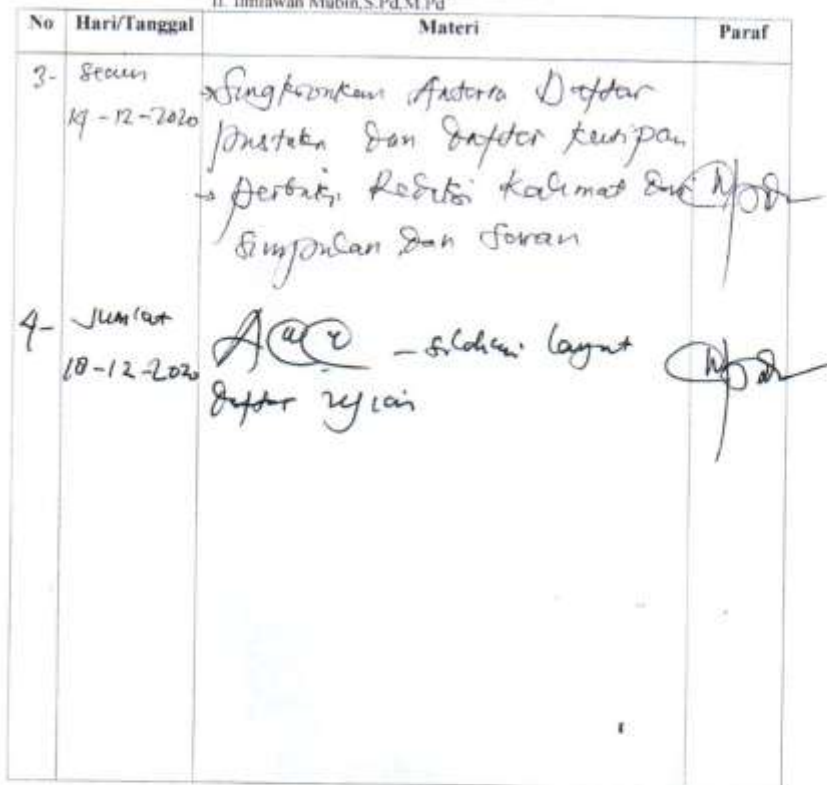 II. Ilmiawan Mubin,S.Pd,M.Pd
No Hari/Tanggal Materi Paraf
3- Senin
→ Singkronkan Antara Daftar
14-12-2020
pustaka dan daftar kutipan
→ perbaiki Redaksi Kalimat dan
Simpulan dan Saran
4- Jum'at
ACC - silahkan lanjut
18-12-2020
daftar ujian